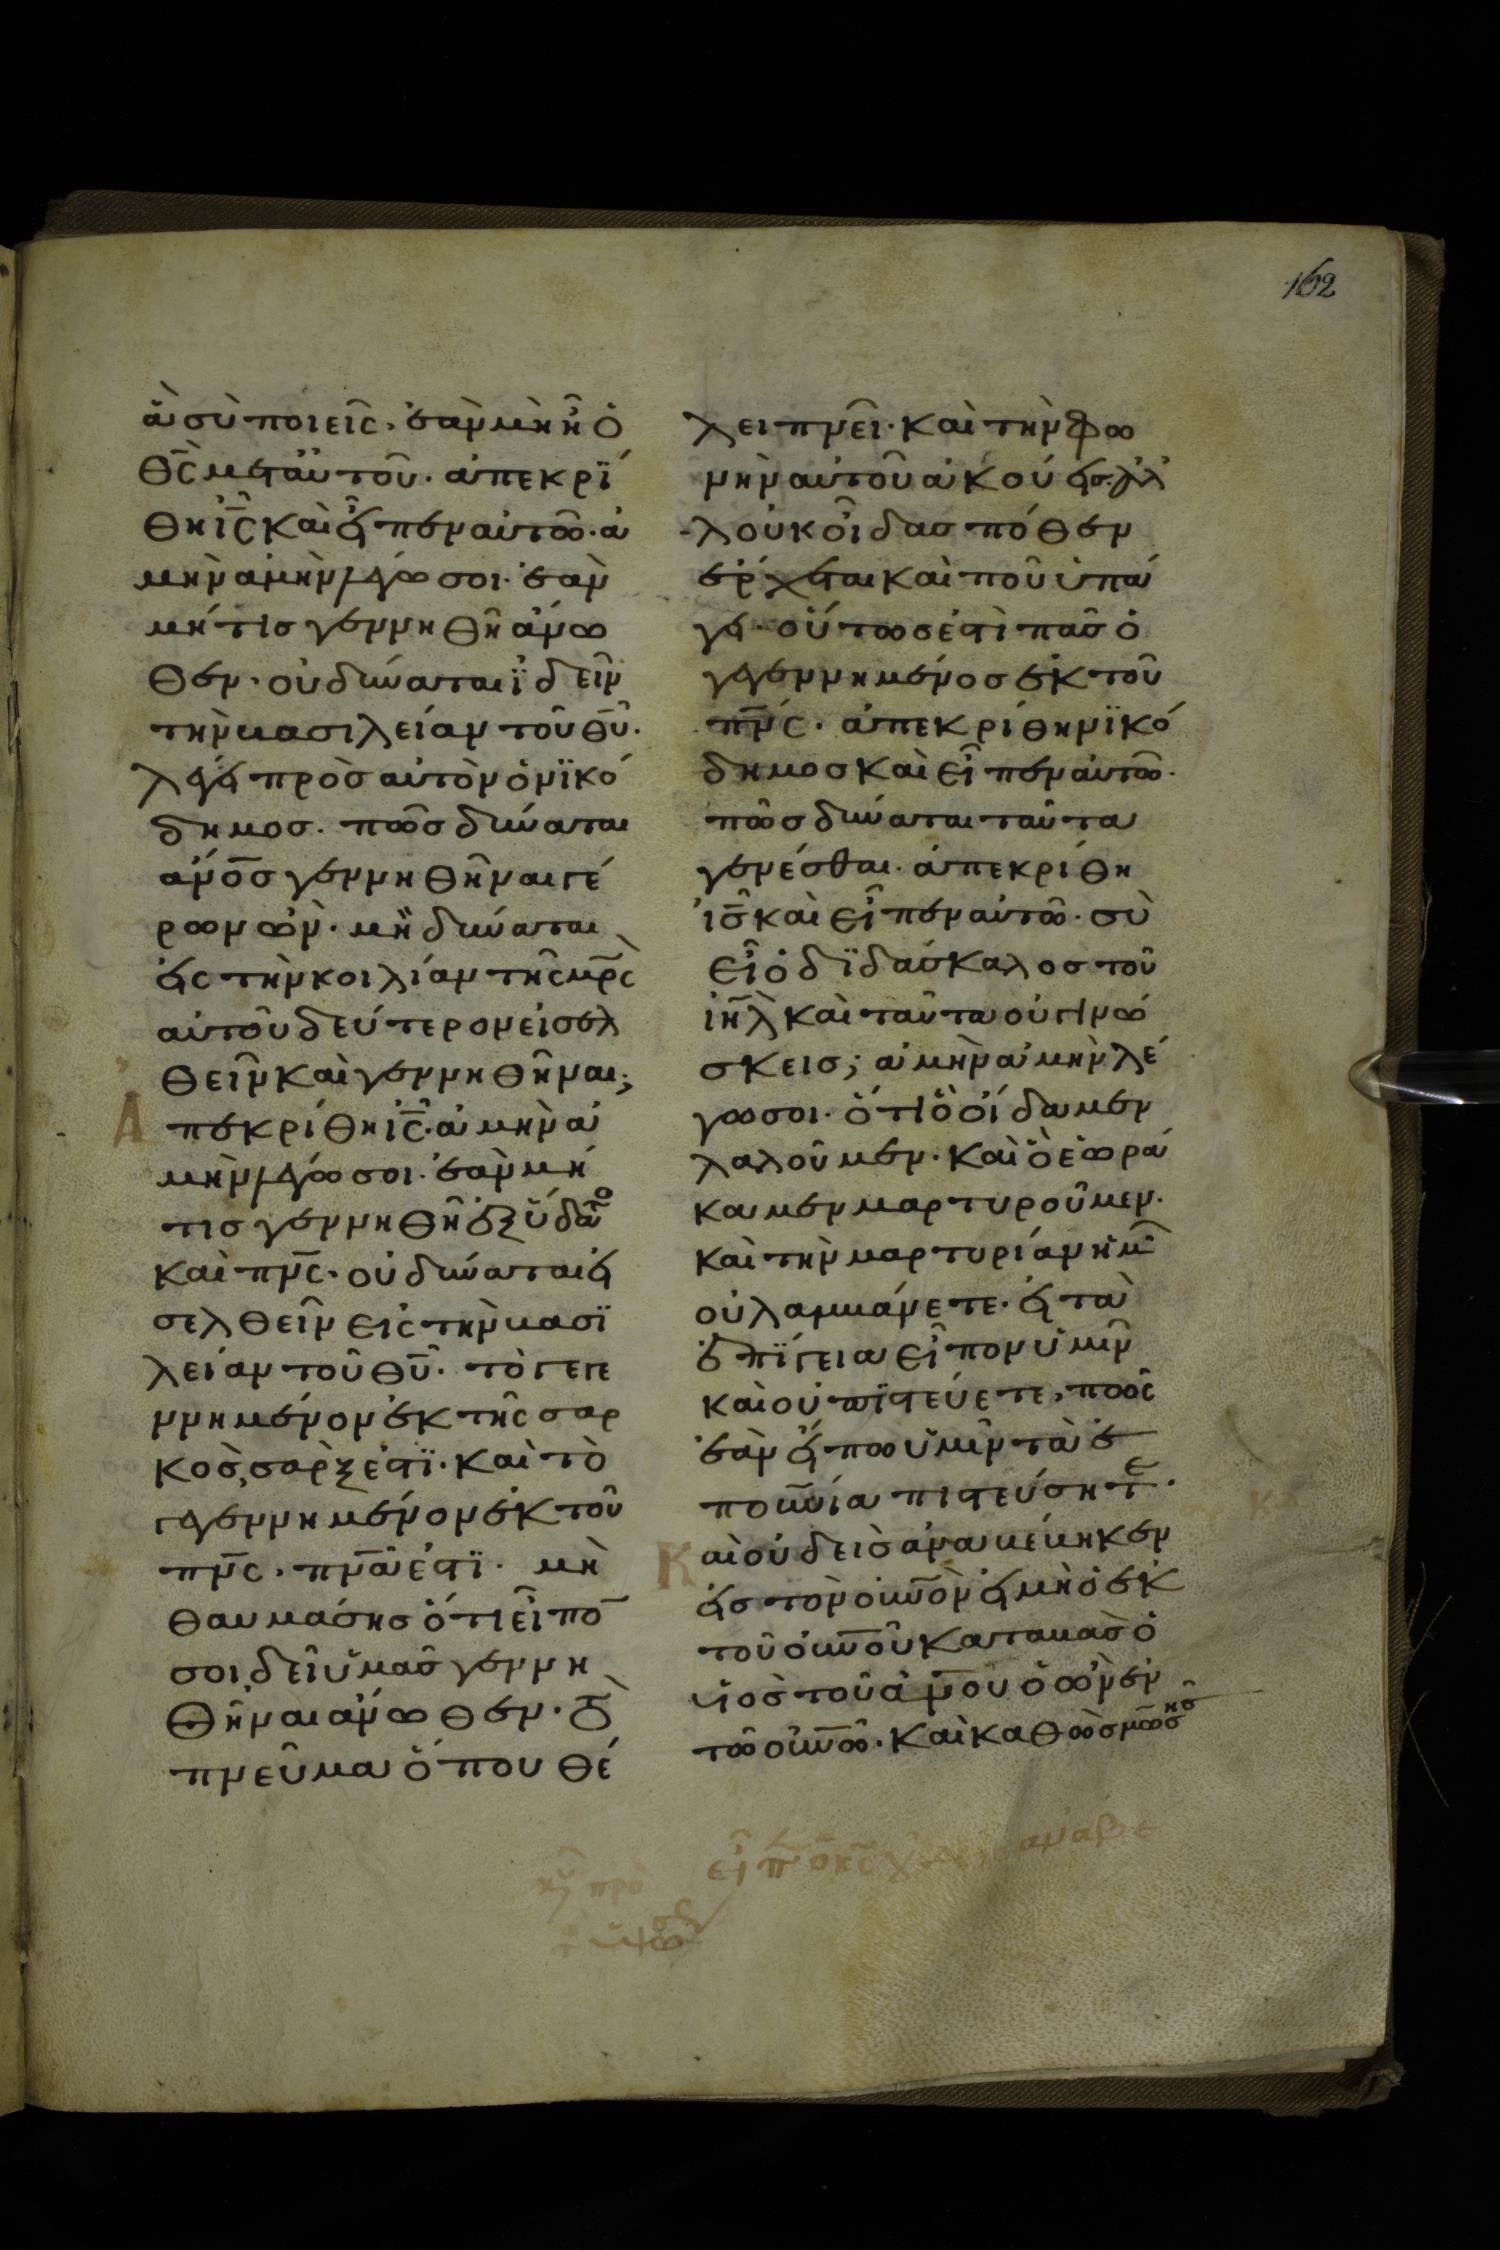 162
ἃ σὺ ποιεῖς· ἐὰν μὴ ἦ ὁ
θ̅ς̅ μετ αὐτοῦ· ἀπεκρί
θη ι̅ς̅ καὶ εἶπεν αὐτῶ· ἀ
μὴν ἀμὴν λέγω σοι· ἐὰν
μή τισ γεννηθῆ ἄνω
θεν· οὐ δύναται ϊδεῖν
τὴν βασιλείαν τοῦ θ̅υ̅·
λέγει πρὸσ αὐτὸν ὁ νϊκό
δημοσ· πῶσ δύναται
ἄν̅ο̅σ̅ γεννηθῆναι γέ
ρων ὢν· μὴ δύναται
εἰς τὴν κοιλίαν τῆς μ̅ρ̅ς̅
αὐτοῦ δεύτερον εἰσελ
θεῖν καὶ γεννηθῆναι;
Ἀ πεκρίθη ι̅ς̅· ἀμὴν ἀ
μὴν λέγω σοι· ἐὰν μή
τισ γεννηθῆ ἐξ ὕδατο
καὶ π̅ν̅ς̅· οὐ δύναται εἰ
σελθεῖν εἰς τὴν βασϊ
λείαν τοῦ θ̅υ̅· τὸ γεγε
ννημένον ἐκ τῆς σαρ
κὸσ, σαρξ ἐστϊ· καὶ τὸ
γεγεννημένον ἐκ τοῦ
π̅ν̅ς̅· π̅ν̅α̅ ἐστϊ· μὴ
θαυμάσησ ὅτι εἶπο̅
σοι, δεῖ ὑμᾶσ γεννη
θῆναι ἄνωθεν· τὸ
πνεῦμα ὅπου θέ
λει πνεῖ· καὶ τὴν φω
νὴν αὐτοῦ ἀκούεισ· ἀλ
λ οὐκ οἶδασ πόθεν
ἔρχεται καὶ ποῦ ὑπά
γει· οὕτωσ ἐστὶ πᾶσ ὁ
γεγεννημένοσ ἐκ τοῦ
π̅ν̅ς̅· ἀπεκρίθη νϊκό
δημοσ καὶ εἶπεν αὐτῶ·
πῶσ δύναται ταῦτα
γενέσθαι· ἀπεκρίθη
ι̅σ̅ καὶ εἶπεν αὐτῶ· σὺ
εἶ ὁ δϊδάσκαλοσ τοῦ
ι̅η̅λ̅ καὶ ταῦτα οὐ γινώ
σκεισ; ἀμὴν ἀμὴν λέ
γω σοι· ὅτι ὃ οἴδαμεν
λαλοῦμεν· καὶ ὃ ἑωρά
καμεν μαρτυροῦμεν·
καὶ τὴν μαρτυρίαν ἡμ̅
οὐ λαμβάνετε· εἰ τὰ
ἐπϊγεια εἶπον ὑμῖν
καὶ οὐ πϊστεύετε, πῶς
ἐὰν εἴπω ὑμῖν τὰ ἐ
πο̅υ̅νία πιστεύσητε·
Κ αὶ οὐδεὶσ ἀναβέβηκεν
εἰσ τὸν ο̅υ̅νὸν εἰ μὴ ὁ ἐκ
τοῦ ο̅υ̅νοῦ καταβὰσ ὁ
υἱὸσ τοῦ ἀ̅ν̅ου ὁ ὢν ἐν
τῶ ο̅υ̅νῶ· καὶ καθὼσ μωσησ